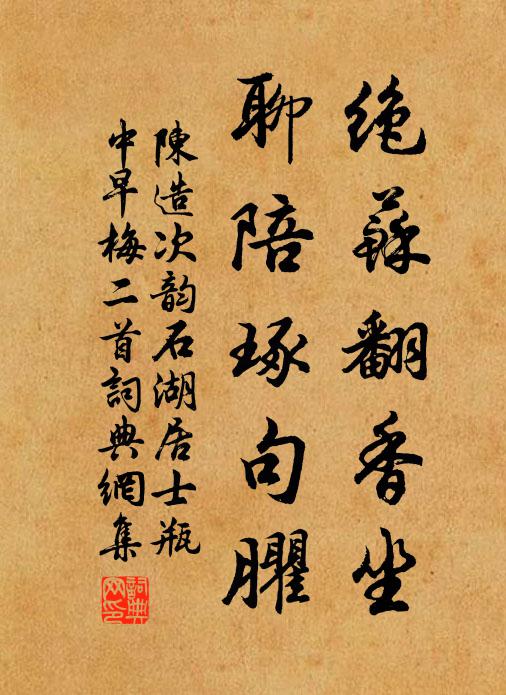 絶蘇翻香坐
聊陪琢句臞
陳造次韵石湖居士瓶
中早梅二首詞典網集
詞典網印